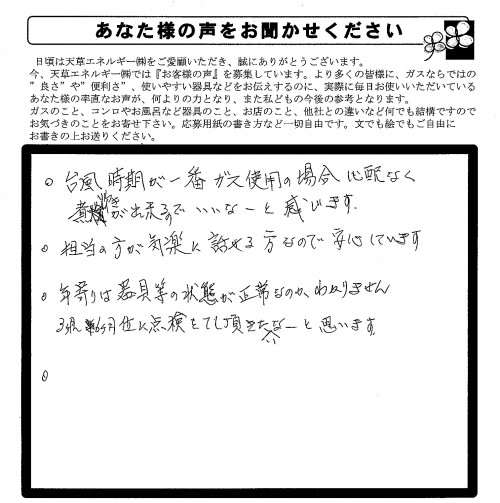 あなた様の声をお聞かせください
日頃は天草エネルギー㈱をご愛顧いただき、誠にありがとうございます。
今、天草エネルギー㈱では『お客様の声』を募集しています。より多くの皆様に、ガスならではの
”良さ”や”便利さ”、使いやすい器具などをお伝えするのに、実際に毎日お使いいただいている
あなた様の率直なお声が、何よりの力となり、また私どもの今後の参考となります。
ガスのこと、コンロやお風呂など器具のこと、お店のこと、他社との違いなど何でも結構ですので
お気づきのことをお寄せ下さい。応募用紙の書き方など一切自由です。文でも絵でもご自由に
お書きの上お送りください。
○ 台風時期が一番ガス使用の場合心配なく
煮焚きが出来るでいいなーと感じます.
○ 担当の方が気楽に話せる方なので安心しています
○ 年寄りは器具等の状態が正常なのか、わかりません
ヶ月位に点検をして頂きたいなーと思います.
○